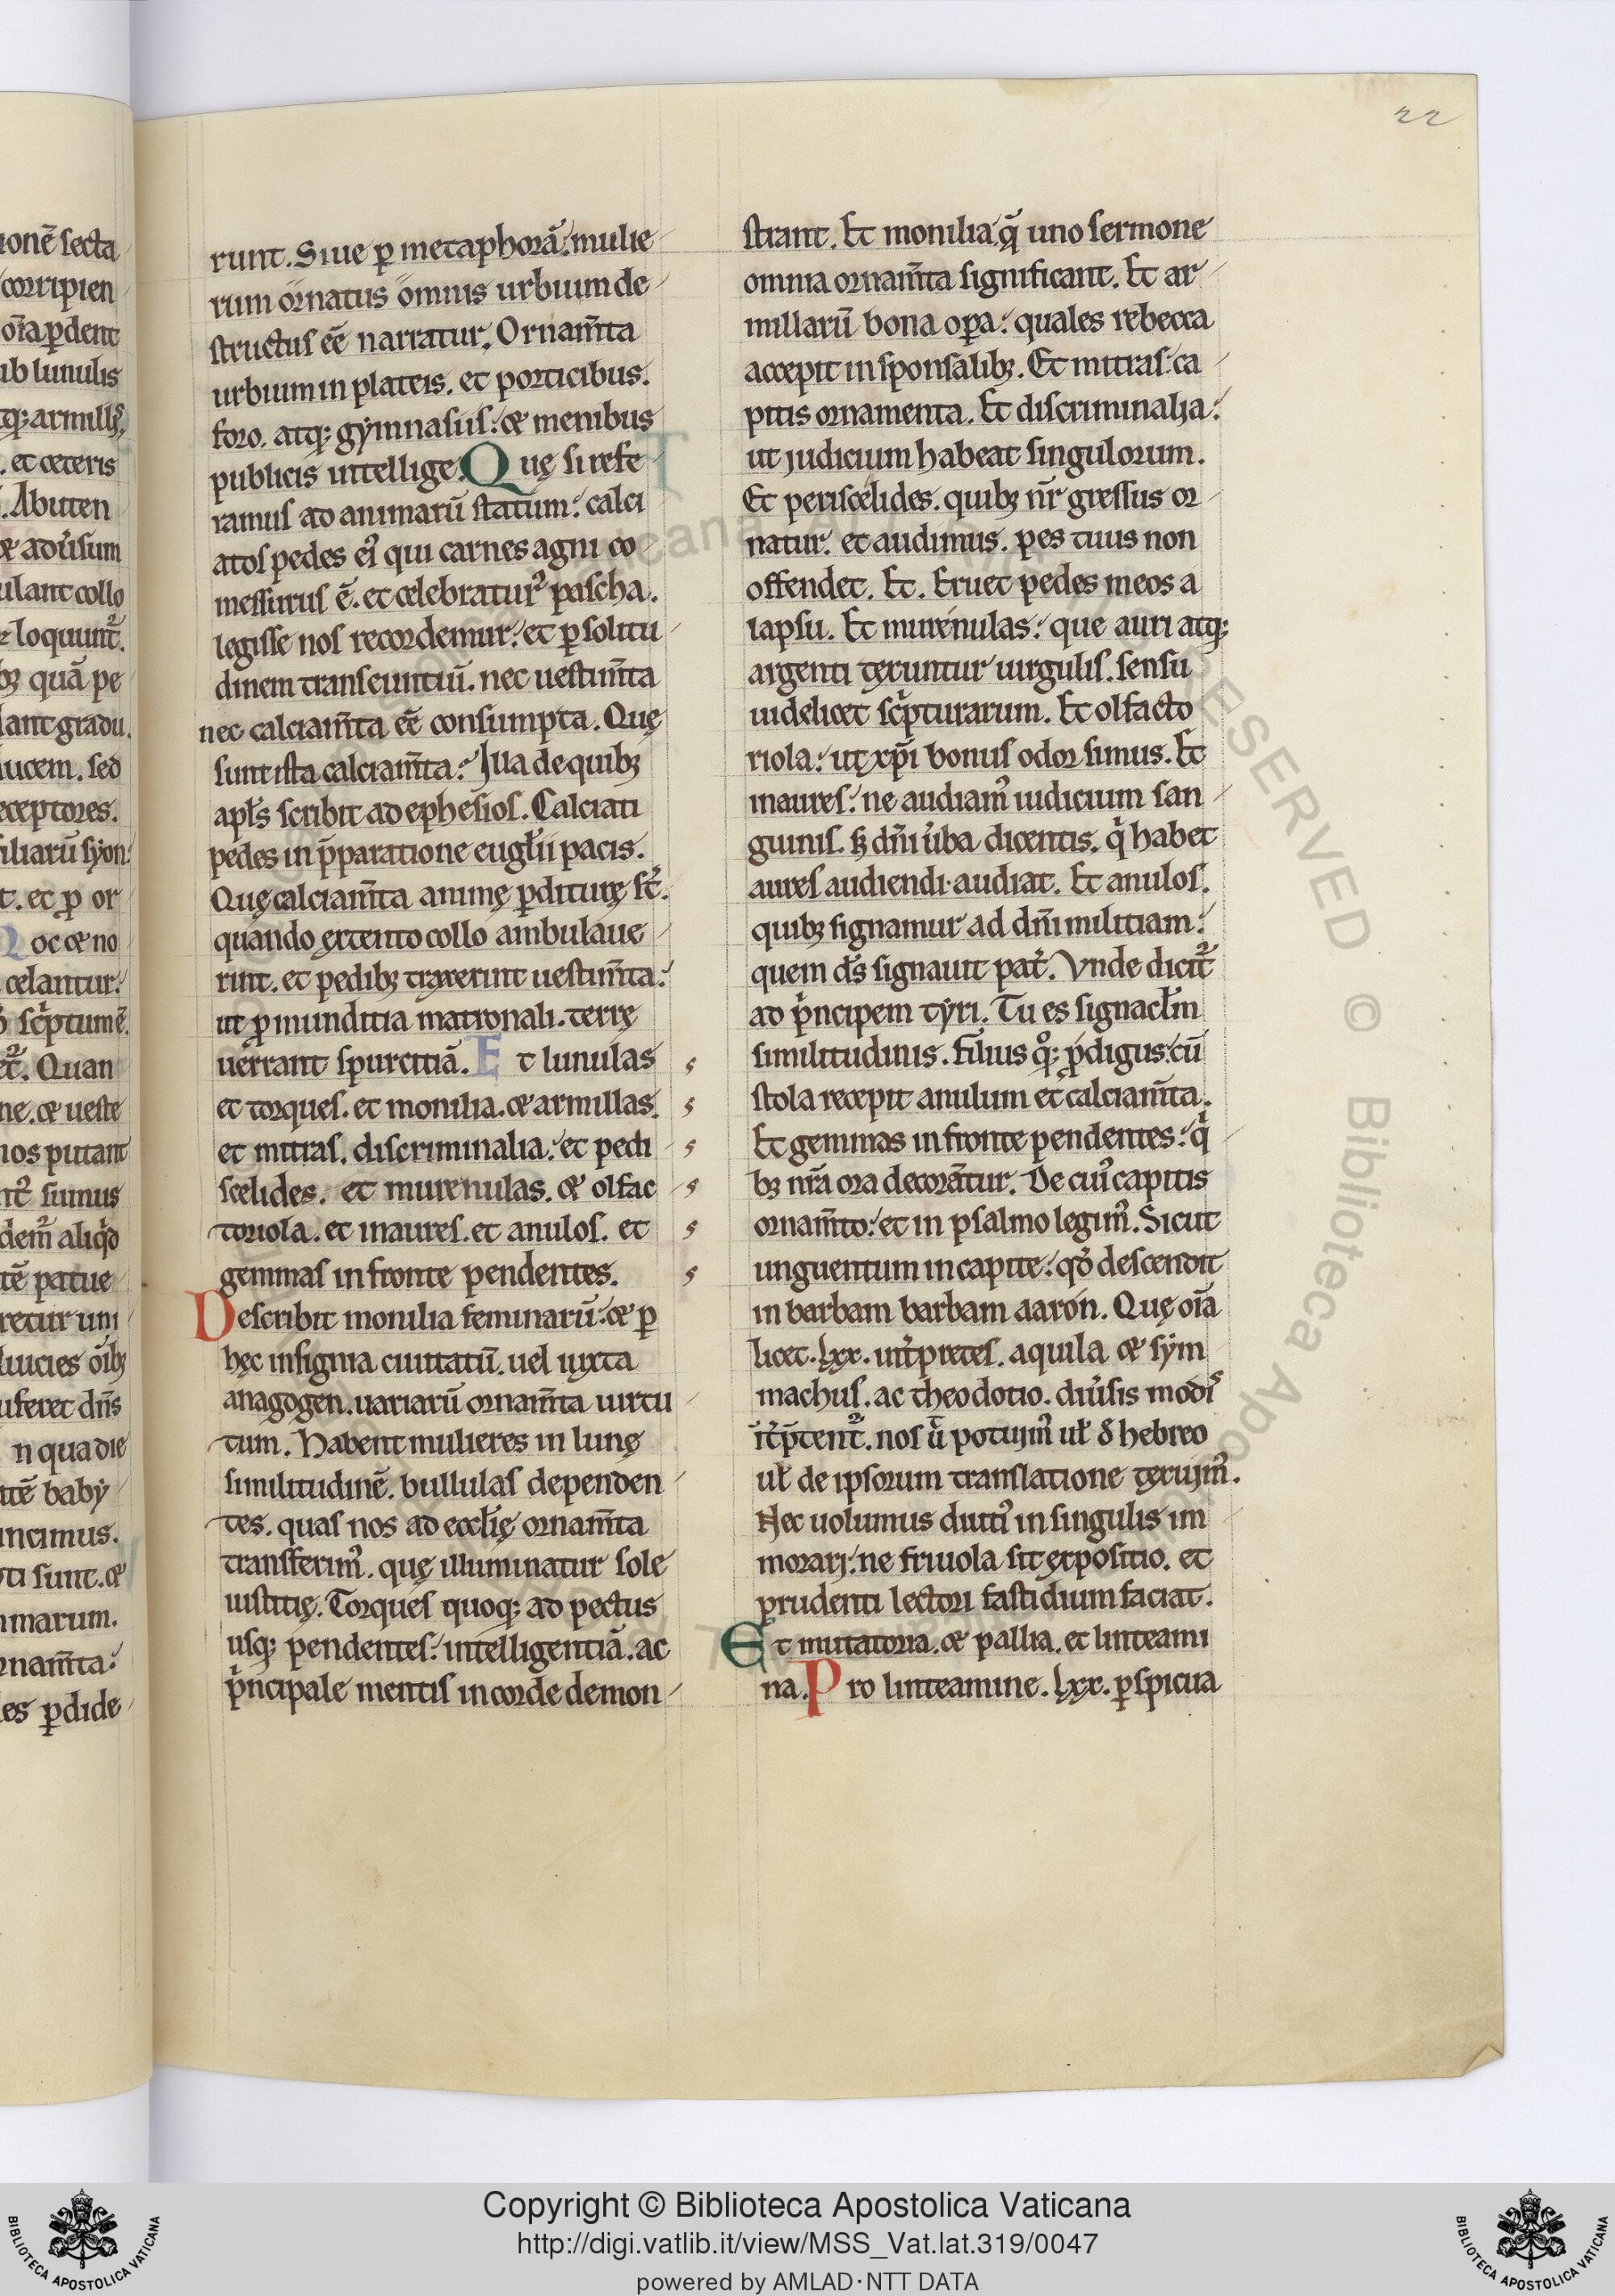 22
ionē secta
corripien
om̄a ꝑdent
ub lunulis
et ceteris
Abuten
ulant collo
loquunt᷑.
quā pe
lant gradu.
lucem. sed
eceptores.
iliarū syon:
t. et ꝓ or
oc & no
celantur:
Quan
ne. & ueste
nos putant
simus
patue
retur uni
uferet dn̄s
n qua die
baby
ncimus.
ti sunt. &
mmarum.
rnam̄ta:
es ꝑdide
runt. Siue ꝑ metaphorā: mulie
rum ornatus omnis urbium de
structus ēē narratur. Ornam̄ta
urbium in plateis. et porticibus.
foro. atq; gymnasiis: & menibus
publicis intellige. Quę si refe
ramus ad animarū statum: calci
atos pedes ei᷒ qui carnes agni co
messurus ē. et celebratur᷒ pascha.
legisse nos recordemur: et ꝑ solitu
dinem transeuntiū. nec uestim̄ta
nec calciam̄ta ēē consumpta. Quę
sunt ista calciam̄ta: Illa de quibꝫ
apl̄s scribit ad ephesios. Calciati
pedes in p̄paratione eugl̄ii pacis.
Quę calciam̄ta animę ꝑditurę st̄.
quando extento collo ambulaue
rint. et pedibꝫ traxerint uestim̄ta:
ut ꝓ munditia matronali. terrę
uerrant spurcitiā. Et lunulas
et torques. et monilia. & armillas.
et mitras. discriminalia: et peri
scelides. et murenulas. & olfac
toriola. et inaures. et anulos. et
gemmas in fronte pendentes.
Describit monilia feminarū: & ꝑ
hęc insignia ciuitatū. uel iuxta
anagogen. uariarū ornam̄ta uirtu
tum. Habent mulieres in lunę
similitudinē. bullulas dependen
tes. quas nos ad eccl̄ię ornam̄ta
transferim᷒. quę illuminatur sole
iustitię. Torques quoq; ad pectus
usq; pendentes: intelligentiā. ac
pͥncipale mentis in corde demon
strant. Et monilia: q̄ uno sermone
omnia ornam̄ta significant. Et ar
millarū bona oꝑa: quales rebecca
accepit in sponsalibꝫ. Et mitras: ca
pitis ornamenta. Et discriminalia:
ut judicium habeat singulorum.
Et periscelides. quibꝫ nr̄ gressus or
natur. et audimus. pes tuus non
offendet. Et. Eruet pedes meos a
lapsu. Et murenulas: que auri atq;
argenti texuntur uirgulis. sensu
uidelicet scͥpturarum. Et olfacto
riola: ut xp̄i bonus odor simus. Et
inaures: ne audiam᷒ iudicium san
guinis. sꝫ dn̄i ūba dicentis. qͥ habet
aures audiendi audiat. Et anulos.
quibꝫ signamur ad dn̄i militiam:
quem ds̄ signauit pat̄. Vnde dicit᷑
ad pͥncipem tyri. Tu es signacl̄m
similitudinis. Filius qͦq; ꝓdigus: cū
stola recepit anulum et calciam̄ta.
Et gemmas in fronte pendentes: qͥ
bꝫ nr̄a ora decorātur. De cui᷒ capitis
ornam̄to: et in psalmo legim᷒. Sicut
unguentum in capite: qđ descendit
in barbam barbam aaron. Quę om̄a
licet. lxx. int̄pretes. aquila & sym
machus. ac theodotio. diūsis modis
it̄p̄tent᷑. nos ū potuim᷒ ut̄ đ hebreo
ul̄ de ipsorum translatione texuim᷒.
Nec uolumus diuti᷒ in singulis im
morari: ne friuola sit expositio. et
prudenti lectori fastidium faciat.
Et mutatoria. & pallia. et linteami
na. Pro linteamine. lxx. ꝑspicua
RESERVED © Biblioteca Apo
Copyright © Biblioteca Apostolica Vaticana
http://digi.vatlib.it/view/MSS_Vat.lat.319/0047
powered by AMLAD·NTT DATA
BIBLIOTECA APOSTOLICA VATICANA
BIBLIOTECA APOSTOLICA VATICANA